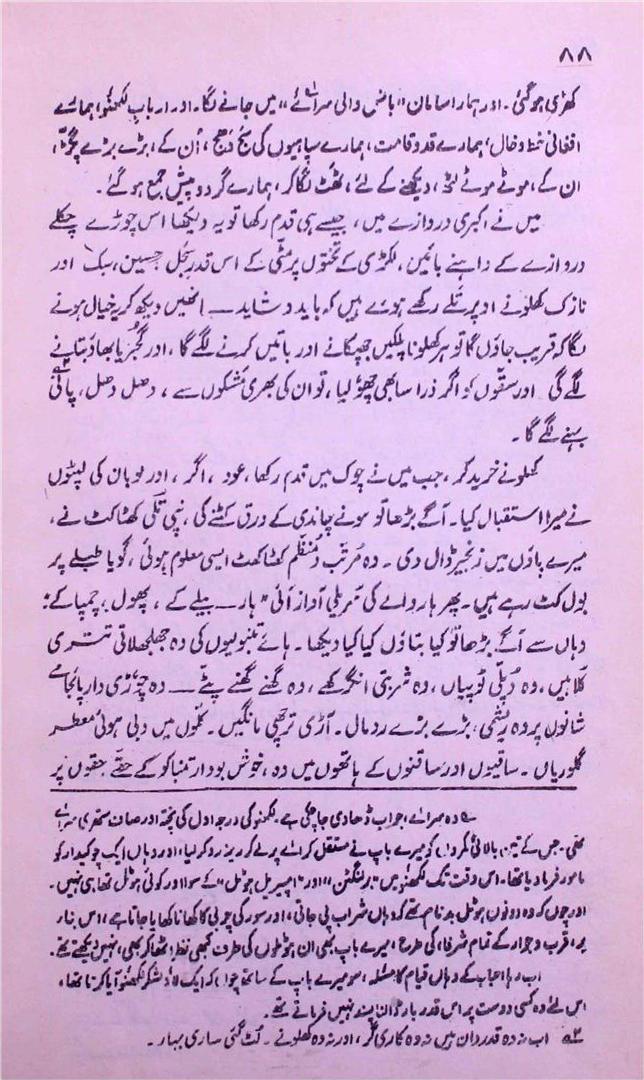 ۸۸
کھڑی ہو گئی۔ اور ہمارا سامان "بانس والی سرائے"؂۱ میں جانے لگا۔ اور ارباب لکھنؤ، ہمارے
افغانی خط و خال، ہمارے قد و قامت، ہمارے سپاہیوں کی سج دھج، اُن کے، بڑے بڑے پگڑ،
ان کے، موٹے موٹے لٹھ، دیکھنے کے لئے، ٹھٹ لگا کر، ہمارے گرد و پیش جمع ہو گئے۔
میں نے اکبری دروازے میں، جیسے ہی قدم رکھا تو یہ دیکھا اس چوڑے چکلے
دروازے کے داہنے بائیں، لکڑی کے تختوں پر مٹی کے اس قدر سجل، حسین، سبک اور
نازک کھلونے اوپر تلے رکھے ہوئے ہیں کہ باید و شاید ـــ انھیں دیکھ کر یہ خیال ہونے
لگا کہ قریب جاؤں گا تو ہر کھلونا پلکیں جھپکانے اور باتیں کرنے لگے گا، اور گجریا بھاؤ بتانے
لگے گی اور سقّوں کو اگر ذرا سا بھی چھو لیا، تو ان کی بھری مَشکوں سے، دھل دھل، پانی؂۲
بہنے لگے گا۔
کھلونے خرید کر، جب میں نے چوک میں قدم رکھا، عود، اگر، اور لوبان کی لپٹوں
نے میرا استقبال کیا۔ آگے بڑھا تو سونے چاندی کے ورق کٹنے کی، نپی تلی کھٹا کٹ نے،
میرے پاؤں میں زنجیر ڈال دی۔ وہ مُرتب و منظّم کھٹا کھٹ ایسی معلوم ہوئی، گویا طبلے پر
بول کٹ رہے ہیں۔ پھر ہار والے کی سُریلی آواز آئی "ہار ـــ بیلے کے، پھول، چمپا کے"
وہاں سے آگے بڑھا تو کیا بتاؤں کیا کیا دیکھا۔ ہائے تنبولیوں کی وہ جھلجھلاتی تشتری
کلاہیں، وہ دُپلّی ٹوپیاں، وہ شربتی انگرکھے، وہ گھنے گھنے پٹّے ـــ وہ چوڑی دار پائجامے
شانوں پر وہ ریشمی، بڑے بڑے رومال۔ آڑی ترچھی مانگیں۔ کلّوں میں دبی ہوئی مُعطر
گلوریاں۔ ساقیوں اور ساقنوں کے ہاتھوں میں وہ، خوش بودار تمباکو کے حقّے، حقوں پر
؂۱ وہ سرائے، جو اب ڈھا دی جا چکی ہے۔ لکھنؤ کی درجہ اول کی پختہ اور صاف ستھری سرائے
تھی۔ جس کے تین بالائی کمروں کو میرے باپ نے مستقل کرائے پر لے کر ریزرو کر لیا، اور وہاں ایک چوکیدار کو
مامور فرما دیا تھا۔ اس وقت تک لکھنؤ میں "برلنگٹن" اور "امپیریل ہوٹل" کے سوا اور کوئی ہوٹل تھا ہی نہیں۔
اور چوں کہ وہ دونوں ہوٹل بدنام تھے کہ وہاں شراب پی جاتی، اور سور کی چربی کا کھانا کھایا جاتا ہے، اس بنا
پر، قرب و جوار کے تمام شرفاء کی طرح، میرے باپ بھی ان ہوٹلوں کی طرف کبھی نظر اٹھا کر بھی، نہیں دیکھتے تھے۔
اب رہا احباب کے وہاں قیام کا مسئلہ، سو میرے باپ کے ساتھ چوں کہ ایک لاؤ لشکر لکھنؤ آیا کرتا تھا،
اس لئے وہ کسی دوست پر اس قدر بار ڈالنا پسند نہیں فرماتے تھے۔
؂۲ اب نہ وہ قدردان ہیں نہ وہ کاری گر، اور نہ وہ کھلونے۔ لُٹ گئی ساری بہار۔